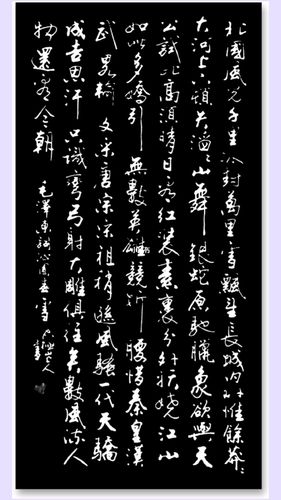 北國風光千里冰封萬里雪飄望長城内外惟餘莽々
大河上下頓失滔々山舞銀蛇原馳臘象欲與天
公試比高須晴日看紅裝素裹分外妖嬈江山
如此多嬌引無數英雄競折腰惜秦皇漢
武略輸文采唐宗宋祖稍遜風騷一代天驕
成吉思汗只識彎弓射大雕俱往矣數風流人
物還看今朝
毛澤東詞沁園春雪 山人書